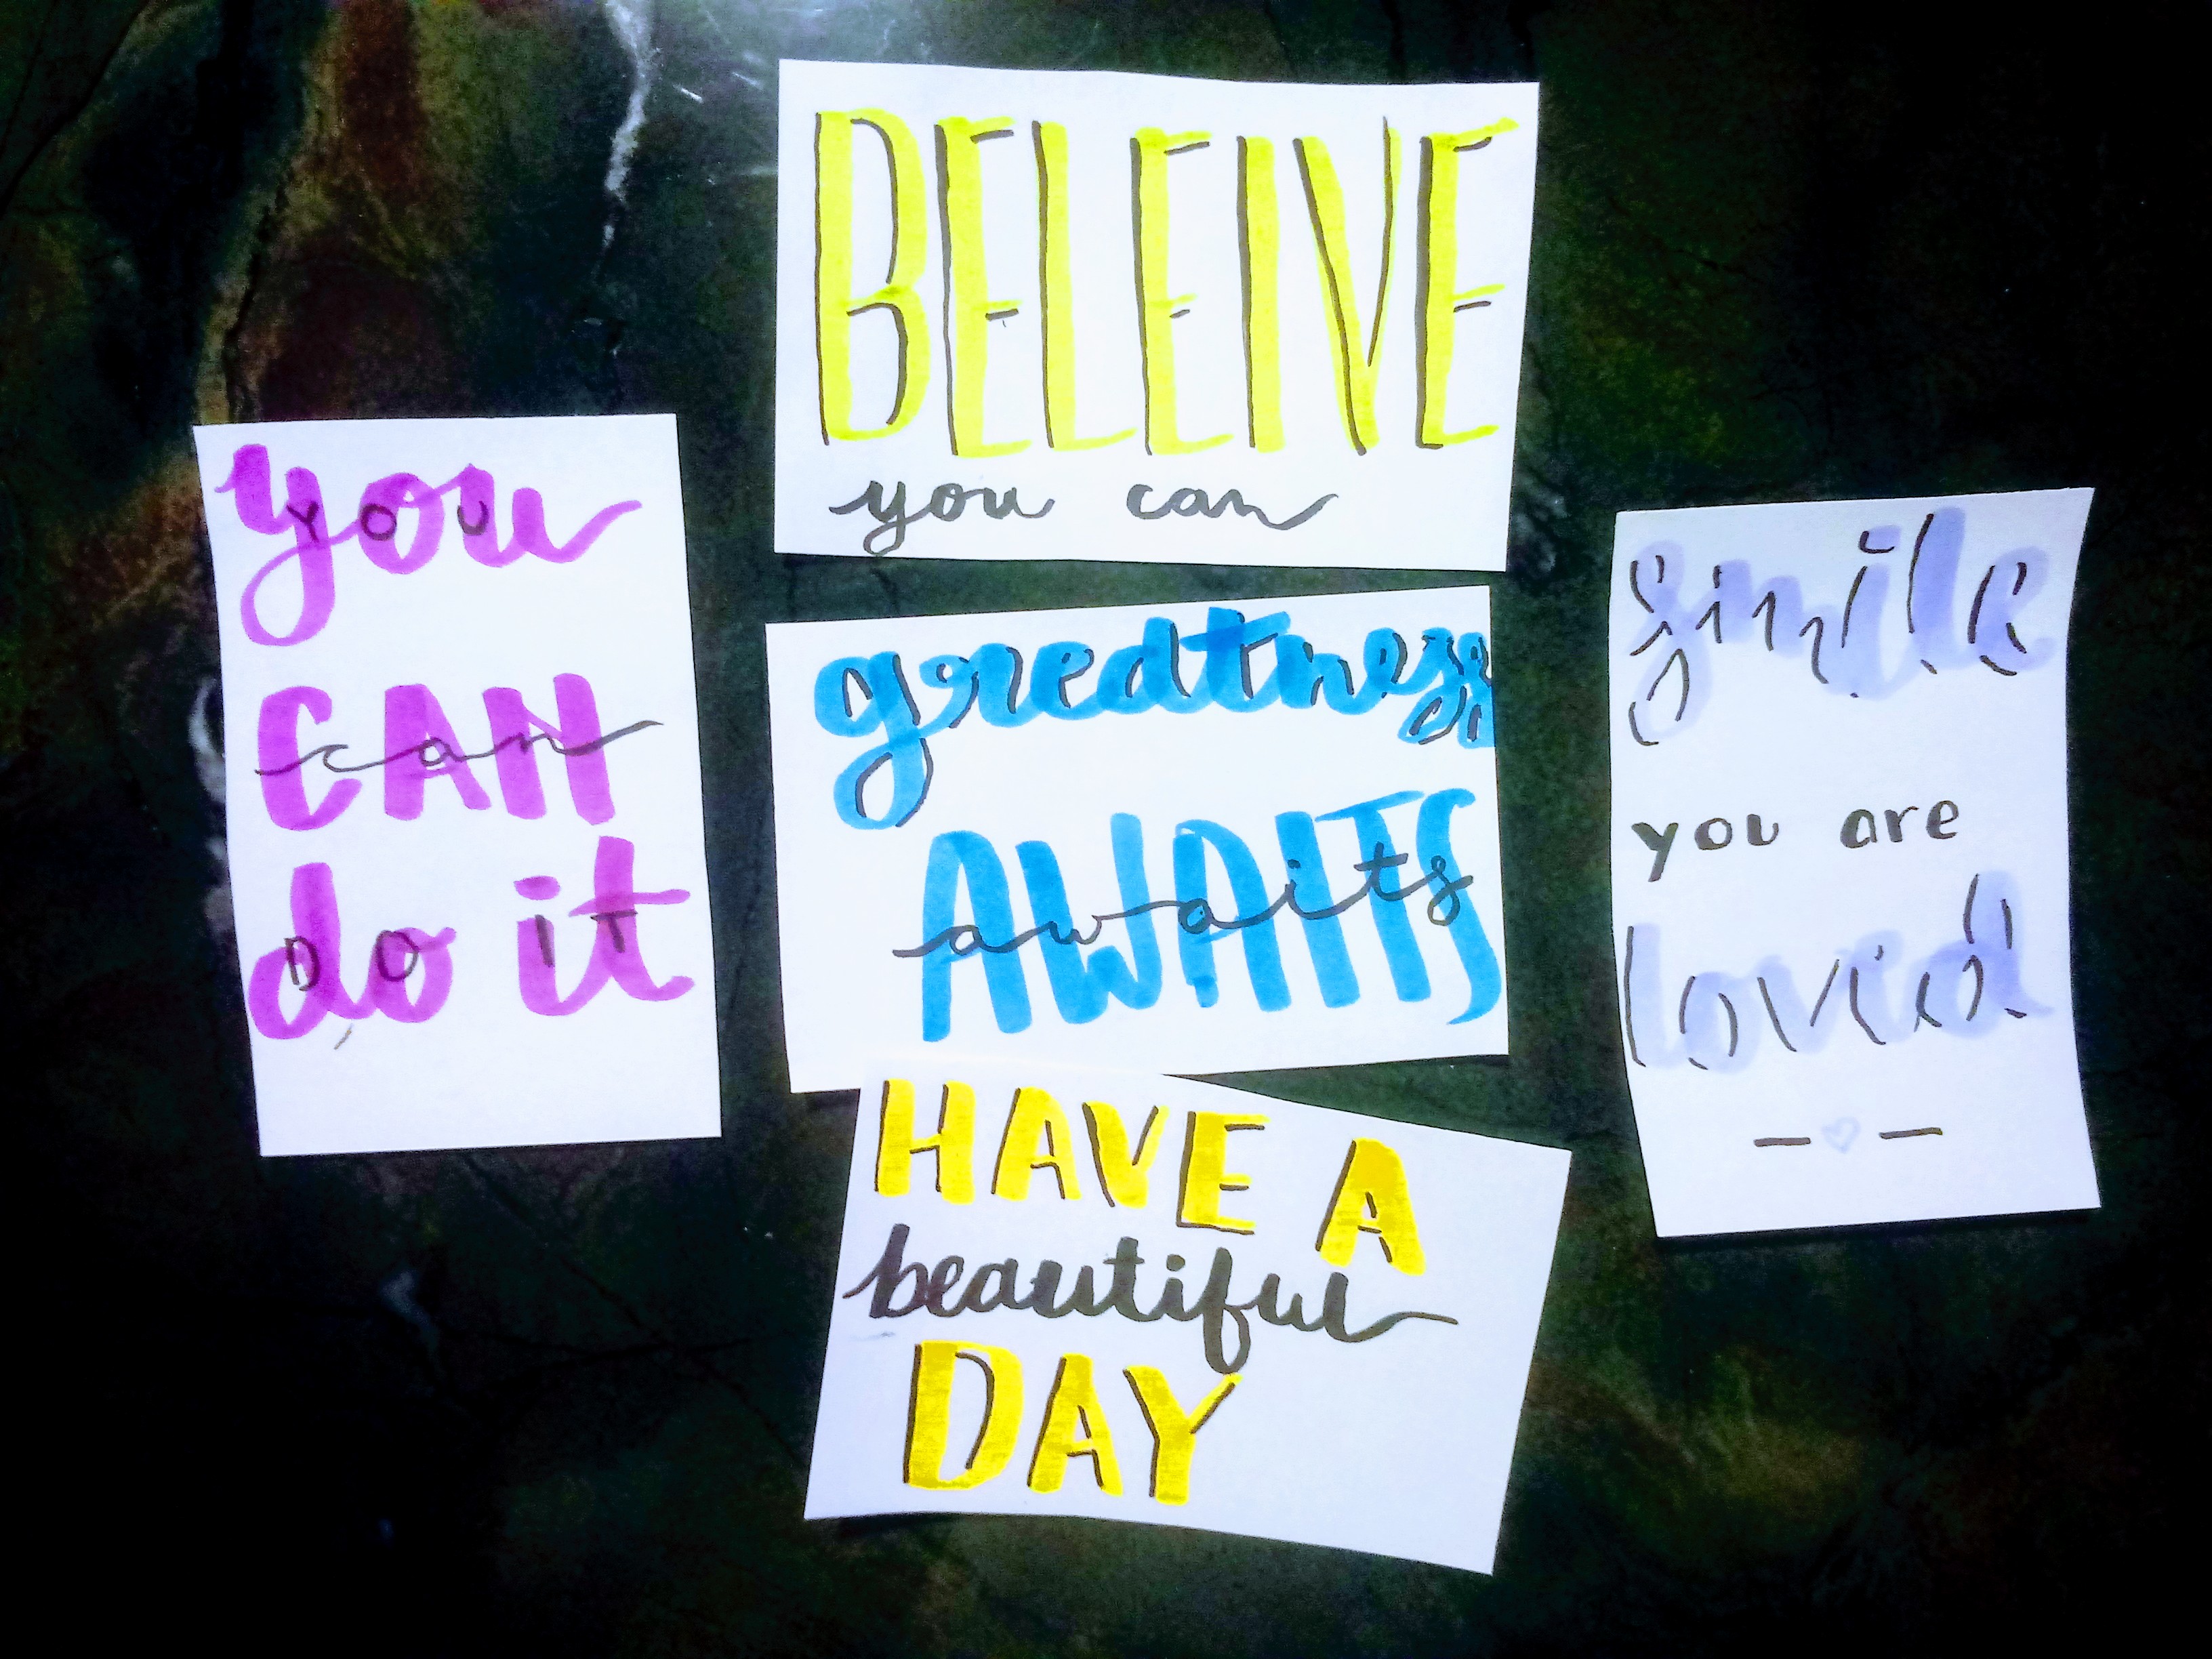 BELEIVE
you can
you
YOU
CAN
can
do it
DO IT
greatness
AWAITS
awaits
smile
you are
loved
HAVE A
beautiful
DAY